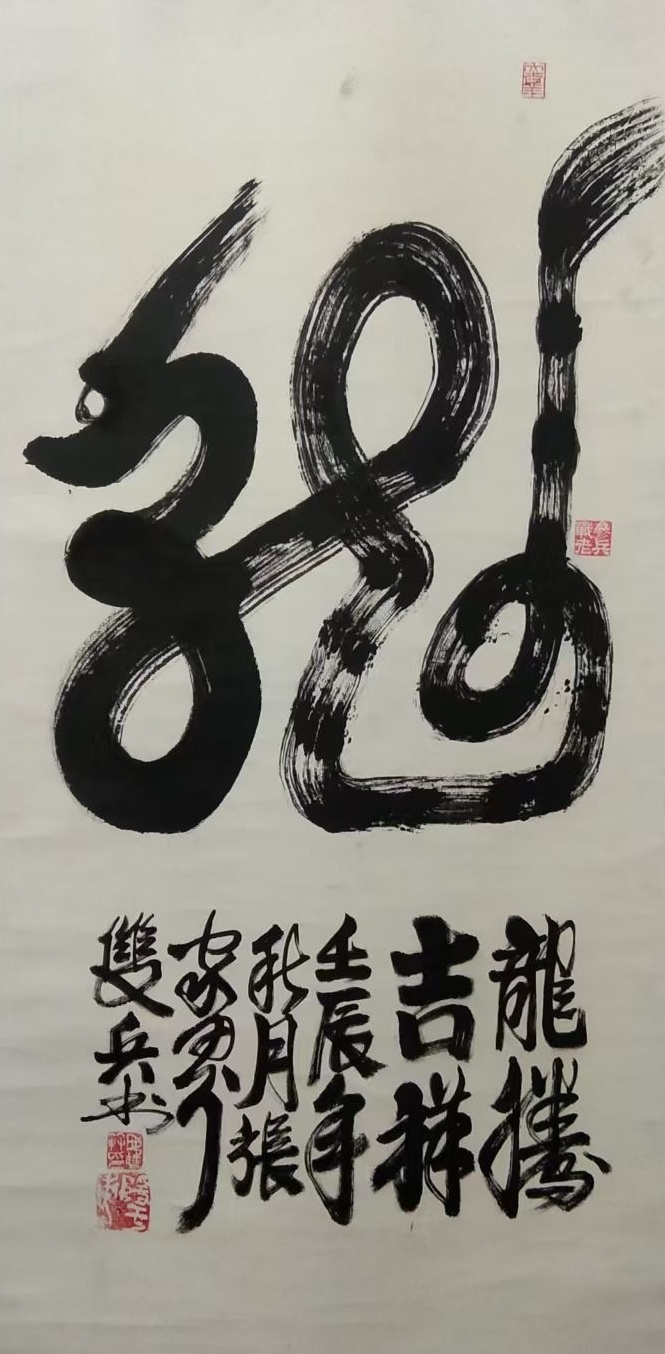 龍
龍騰
吉祥
壬辰年
秋月張
家界人
雙兵书